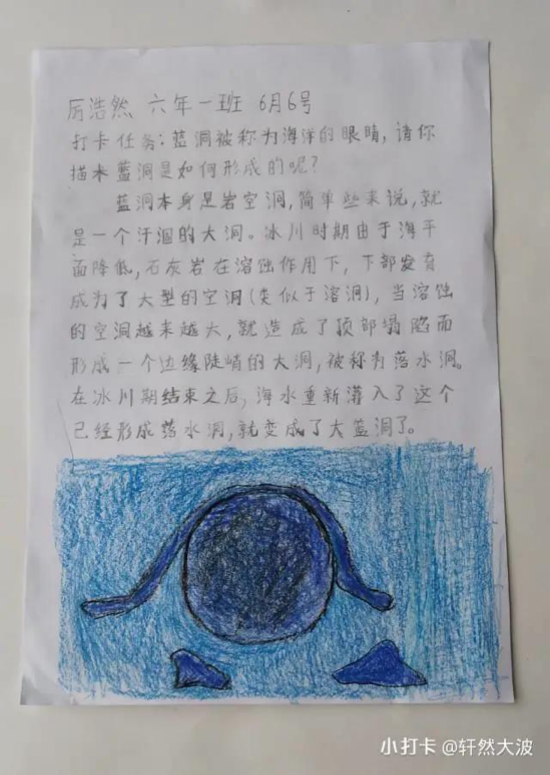 厉浩然 六年一班 6月6号
打卡任务:蓝洞被称为海洋的眼睛,请你
描术蓝洞是如何形成的呢?
蓝洞本身是岩空洞,简单些来说,就
是一个汗涸的大洞。冰川时期由于海平
面降低,石灰岩在溶蚀作用下,下部发育
成为了大型的空洞(类似于溶洞),当溶蚀
的空洞越来越大,就造成了顶部塌陷而
形成一个边缘陡峭的大洞,被称为落水洞。
在冰川期结束之后,海水重新灌入了这个
已经形成落水洞,就变成了大蓝洞了。
小打卡 @轩然大波